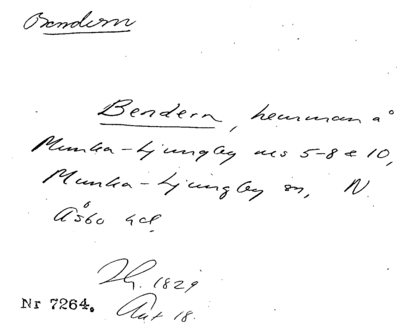 Bendern
Bendern, hemman å
Munka-Ljungby ms 5-8 & 10,
Munka-Ljungby sn, N.
Åsbo hd.
1829
Akt 18.
Nr 7264.